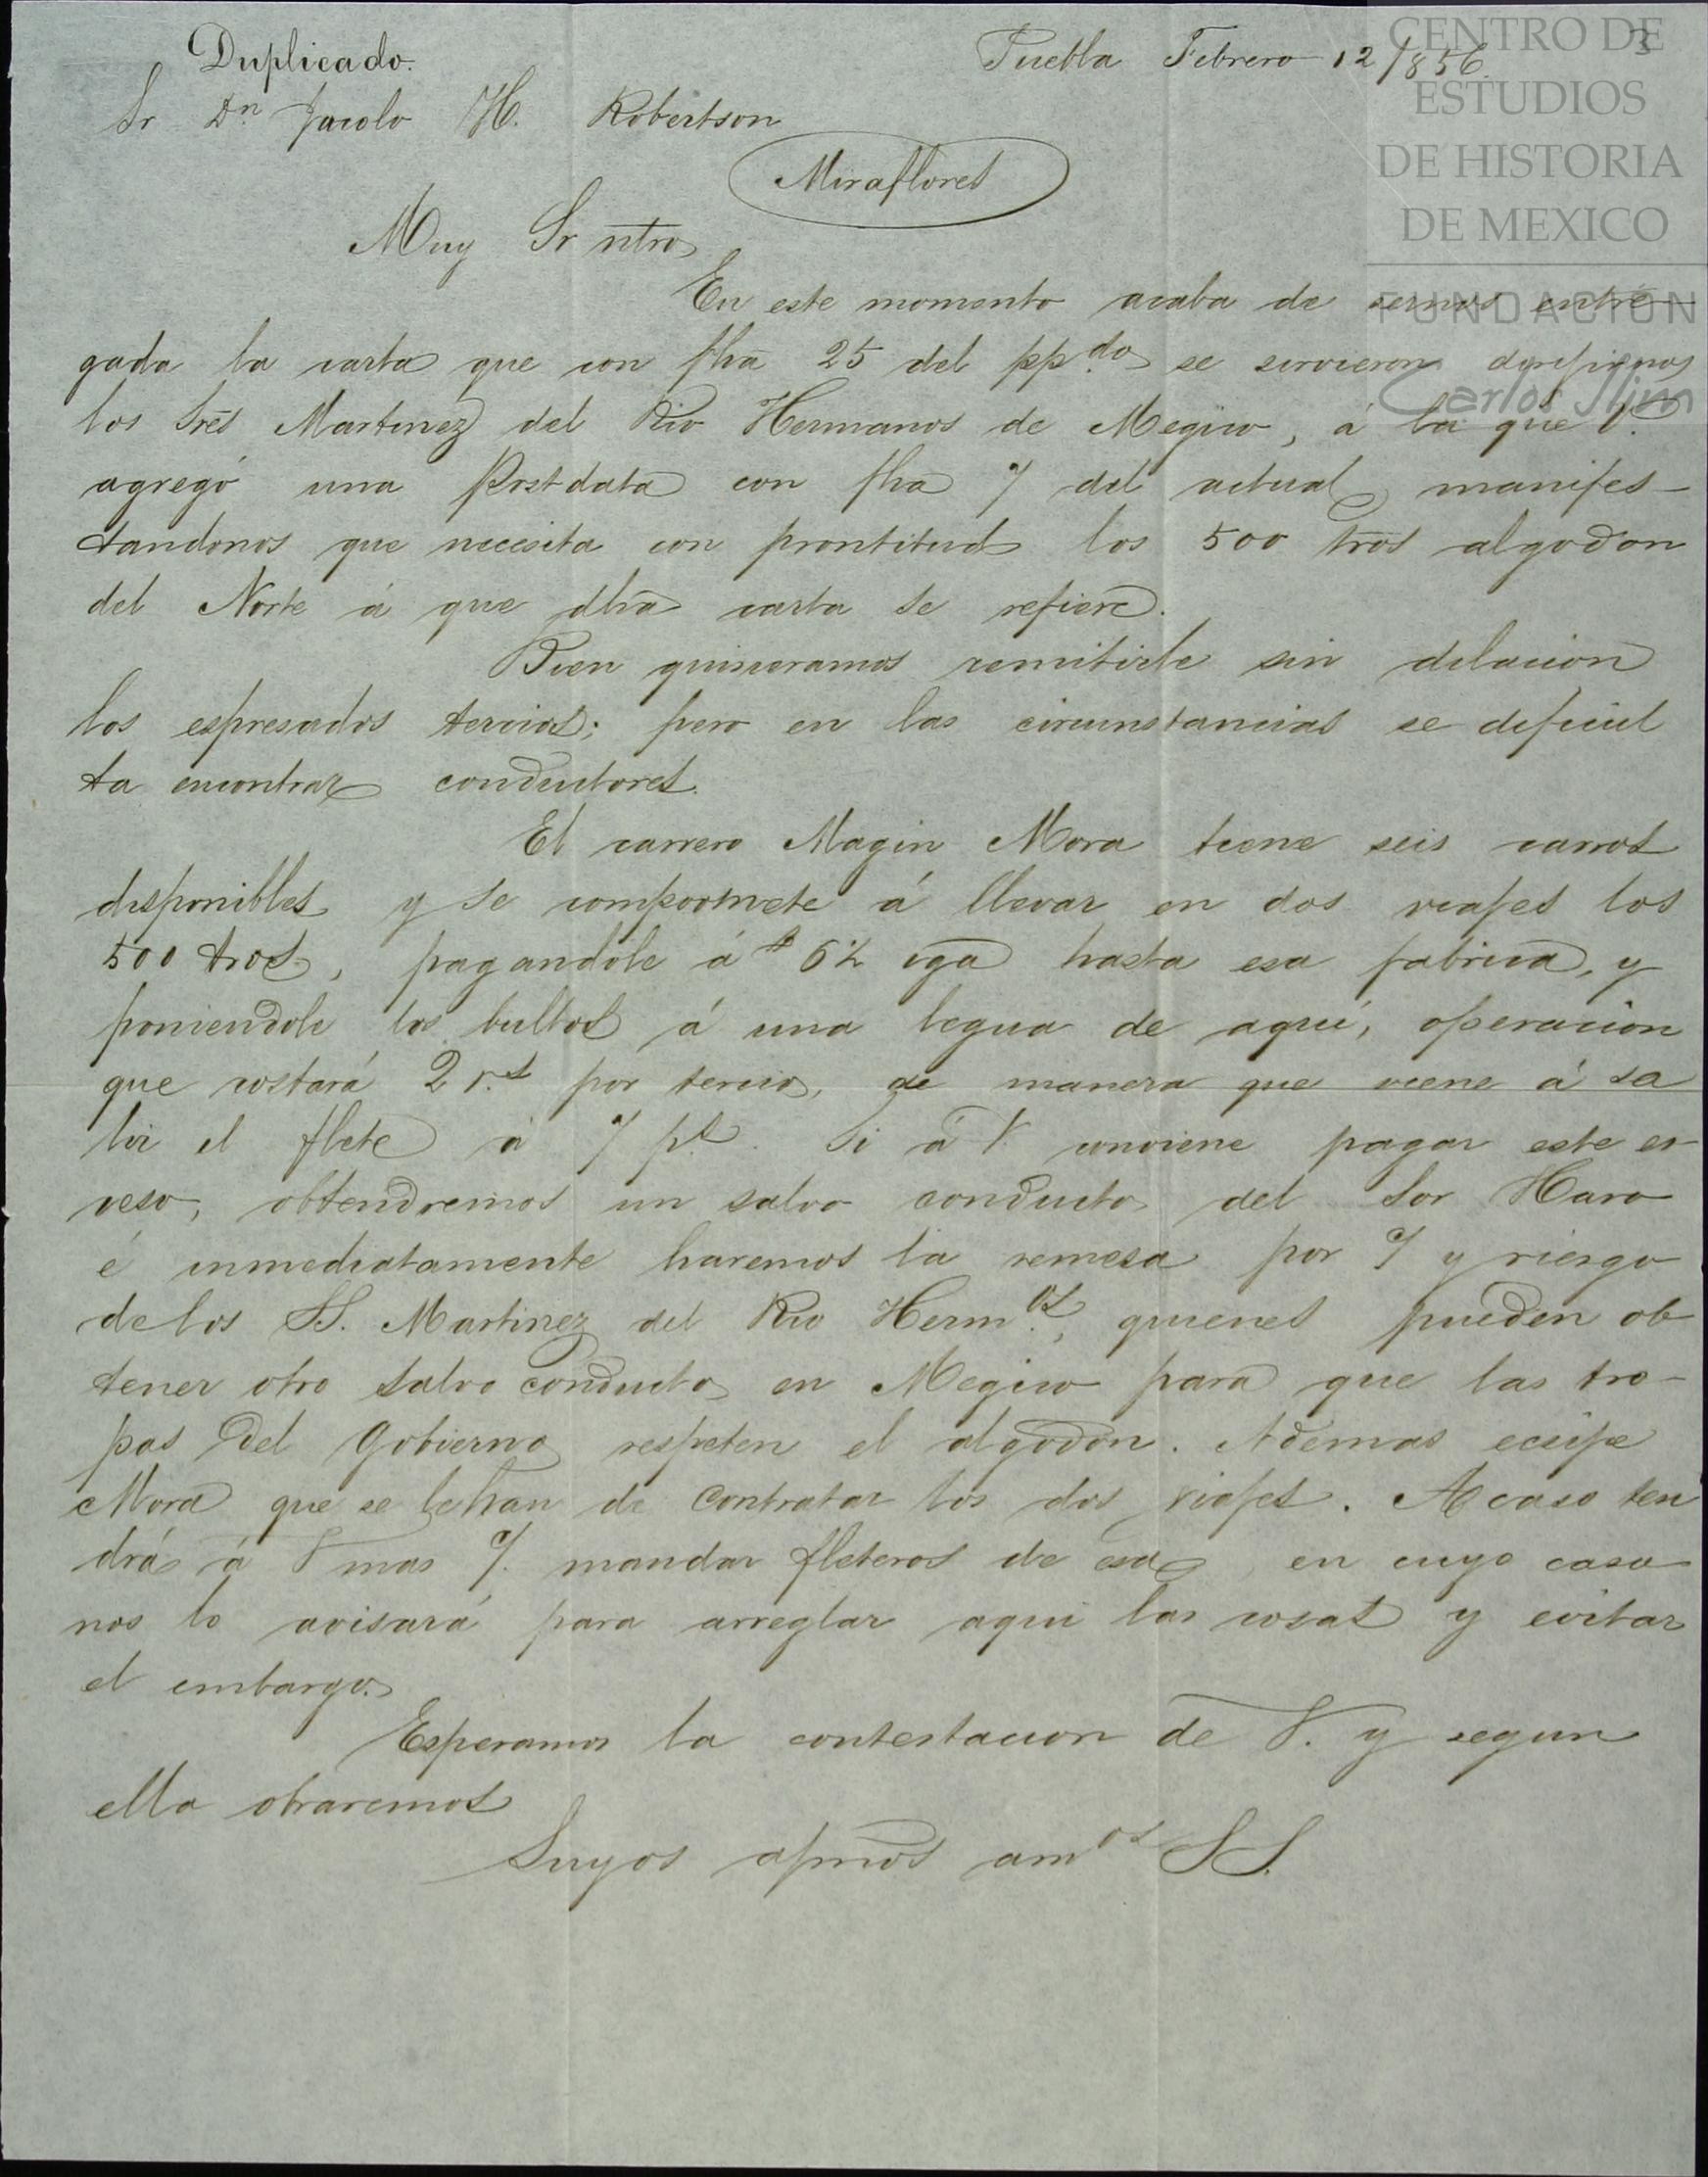 Duplicado.
Puebla Febrero 12/856.
3
CENTRO DE
ESTUDIOS
DE HISTORIA
DE MEXICO
FUNDACIÓN
Carlos Slim
Sr Dn Jacobo H. Robertson
Miraflores
Muy Sr ntro
En este momento acaba de sernos entre
gada la carta que con fha 25 del pp.do se sirvieron dirijirnos
los Sres Martinez del Rio Hermanos de Megico, á la que V.
agregó una Postdata con fha 7 del actual manifes-
tandonos que necesita con prontitud los 500 tros algodon
del Norte á que dha carta se refiere.
Bien quisieramos remitirle sin dilacion
los espresados tercios; pero en las circunstancias se dificul
ta encontrar conductores.
El carrero Magin Mora tiene seis carros
disponibles y se compromete á llevar en dos viajes los
500 tros, pagandole á $ 6½ cga hasta esa fabrica, y
poniendole los bultos á una legua de aquí, operacion
que costará 2 r.s por tercio, de manera que viene á sa
lir el flete á 7 p.s. Si á V conviene pagar este es
ceso, obtendremos un salvo conducto del Sor Haro
é inmediatamente haremos la remesa por y riesgo
de los SS. Martinez del Rio Herm.os, quienes pueden ob
tener otro salvo conducto en Megico para que las tro-
pas del Gobierno respeten el algodon. Ademas ecsije
Mora que se le han de contratar los dos viajes. Acaso ten
drá á V mas mandar fleteros de esa, en cuyo caso
nos lo avisará para arreglar aqui las cosas y evitar
el embargo.
Esperamos la contestacion de V. y segun
ella obraremos
Suyos afmos amos SS.